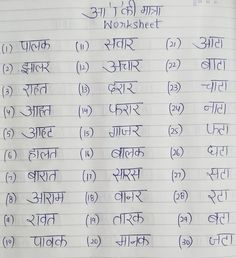 आ 'ा' की मात्रा
Worksheet
(1) पालक (11) सवार (21) आटा
(2) झालर (12) अचार (22) बाटा
(3) राहत (13) दरार (23) चाटा
(4) आहत (14) फरार (24) नाटा
(5) आहट (15) गाजर (25) फटा
(6) हालत (16) बालक (26) घटा
(7) बारात (17) सारस (27) सटा
(8) आराम (18) वानर (28) रटा
(9) रावत (19) तारक (29) बटा
(10) पावक (20) मानक (30) जटा